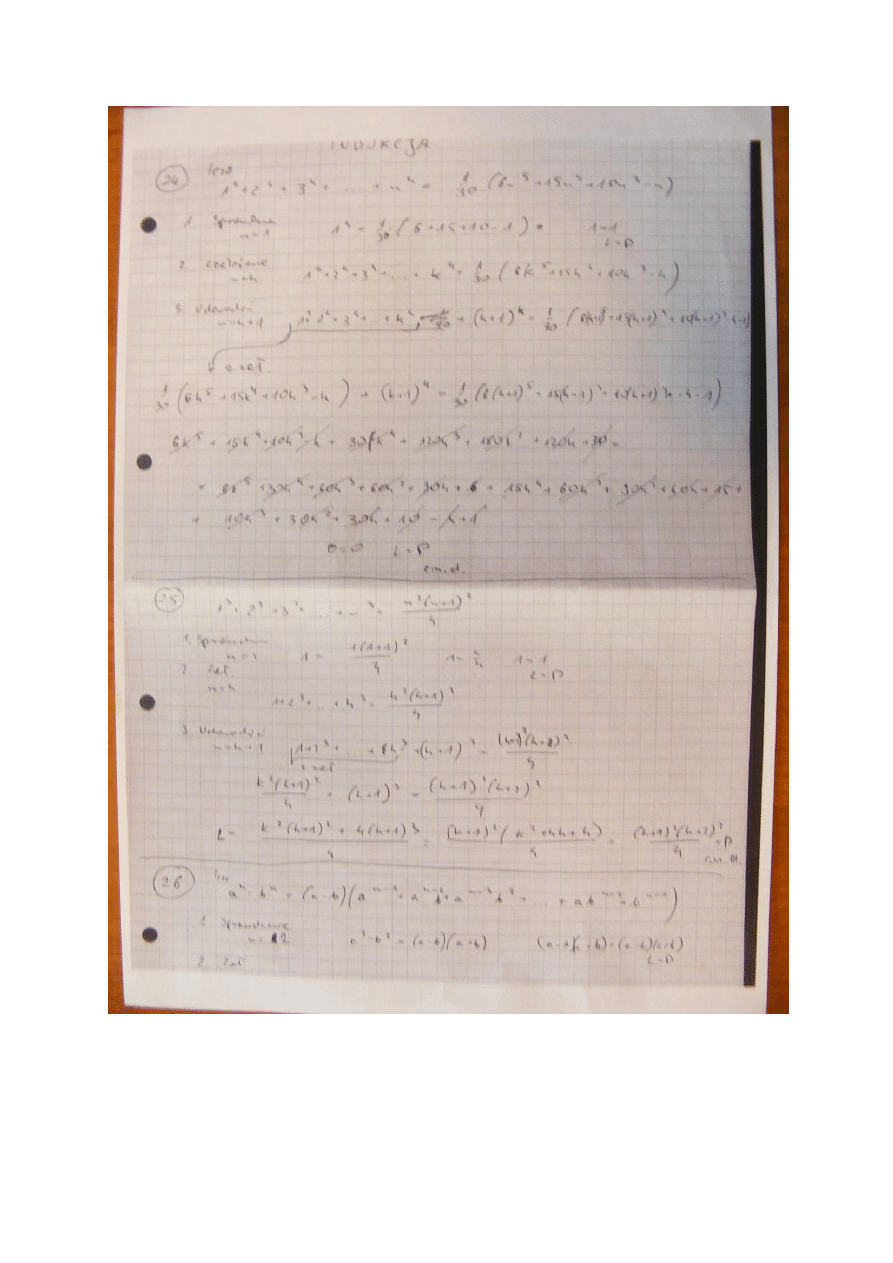 INDUKCJA
24 Teza
1⁴+2⁴+3⁴+ ... + n⁴ = 1/30 (6n⁵+15n⁴+10n³-n)
1. Sprawdzenie n=1 1⁴ = 1/30 (6+15+10-1) 1=1
L=P
2. założenie n=k 1⁴+2⁴+3⁴+ ... + k⁴ = 1/30 (6k⁵+15k⁴+10k³-k)
3. n=k+1 1⁴+2⁴+3⁴+...+k⁴ + (k+1)⁴ = 1/30 (6(k+1)⁵+15(k+1)⁴+10(k+1)³-k-1)
z zał
1/30 (6k⁵+15k⁴+10k³-k) + (k+1)⁴ = 1/30 (6(k+1)⁵+15(k+1)⁴+10(k+1)³-k-1)
6k⁵ + 15k⁴+10k³-k + 30k⁴ + 120k³ + 180k² + 120k + 30 =
= 6k⁵+30k⁴+60k³+60k²+30k+6 + 15k⁴+60k³+90k²+60k+15+
+ 10k³+30k²+30k+10 -k+1
0=0 L=P
c.n.d.
25 1³+2³+3³+ ... + n³ = n²(n+1)²/4
1. Sprawdzenie n=1 1 = 1(1+1)²/4 1=4/4 1=1
L=P
2. Zał.
n=k
1+2³+...+k³ = k²(k+1)²/4
3. n=k+1 1+2³+ ... +k³+(k+1)³ = (k+1)²(k+2)²/4
z zał
k²(k+1)²/4 + (k+1)³ = (k+1)²(k+2)²/4
L = k²(k+1)² + 4(k+1)³/4 = (k+1)²(k²+4k+4)/4 = (k+1)²(k+2)²/4 = P
c.n.d.
26 aⁿ-bⁿ = (a-b)(aⁿ⁻¹+aⁿ⁻²b+aⁿ⁻³b²+ ... + abⁿ⁻²+bⁿ⁻¹)
1. Sprawdzenie
n=2 a²-b² = (a-b)(a+b) (a-b)(a+b)=(a-b)(a+b)
L=P
2. Zał